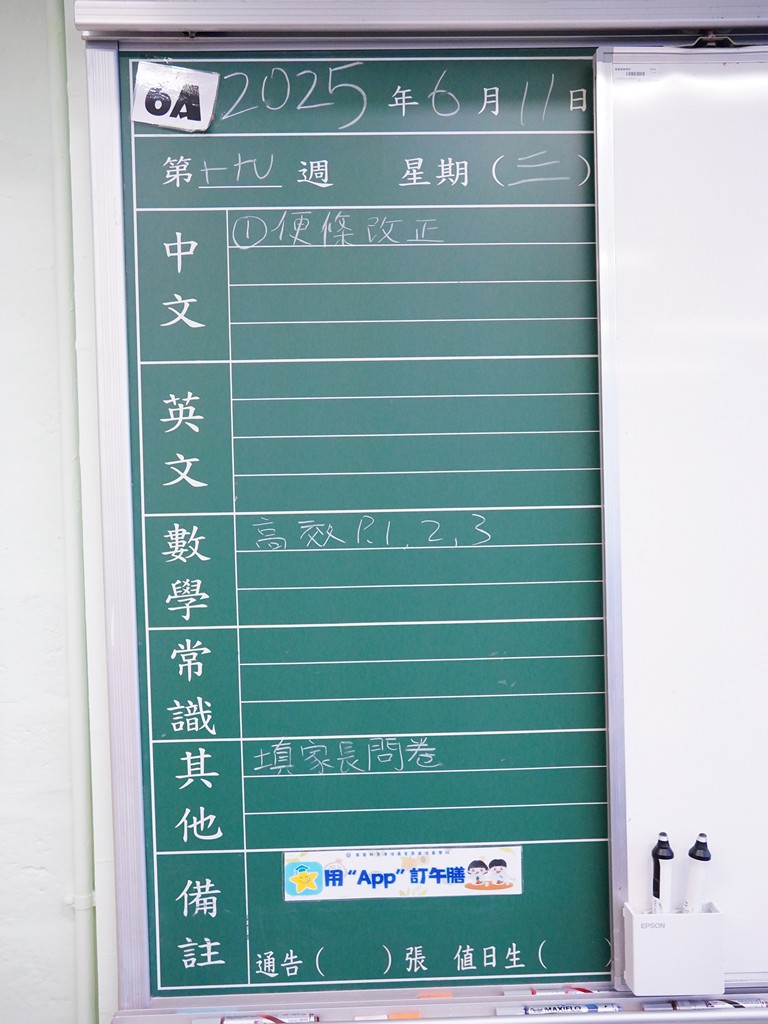 6A 2025年6月11日
第十九週 星期（三）
中文 ①便條改正
英文
數學 高效 P.1, 2, 3
常識
其他 填家長問卷
備註
用“App”訂午膳
通告（ ）張 值日生（ ）
EPSON
MAXIFLO